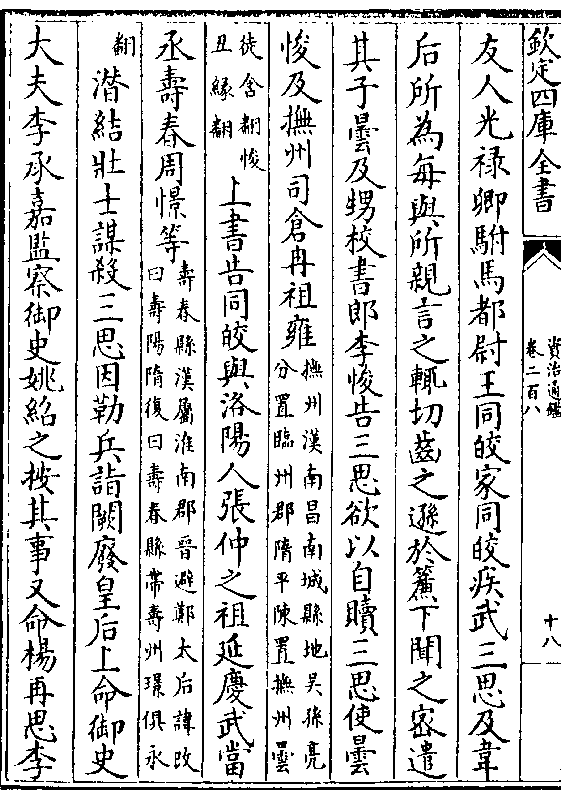 欽定四庫全書
資治通鑑
卷二百八
十八
友人光禄卿駙馬都尉王同皎家同皎疾武三思及韋
后所為每與所親言之輒切齒之遜於簾下聞之密遣
其子曇及甥校書郎李悛告三思欲以自贖三思使曇
悛及撫州司倉冉祖雍
撫州漢南昌南城縣地吴孫亮
分置臨州郡隋平陳置撫州曇
徒含翻悛
丑緣翻
上書告同皎與洛陽人張仲之祖延慶武當
丞壽春周憬等
壽春縣漢屬淮南郡晉避鄭太后諱改
曰壽陽隋復曰壽春縣帶壽州璟俱永
翻
潜結壯士謀殺三思因勒兵詣闕廢皇后上命御史
大夫李承嘉監察御史姚紹之按其事又命楊再思李